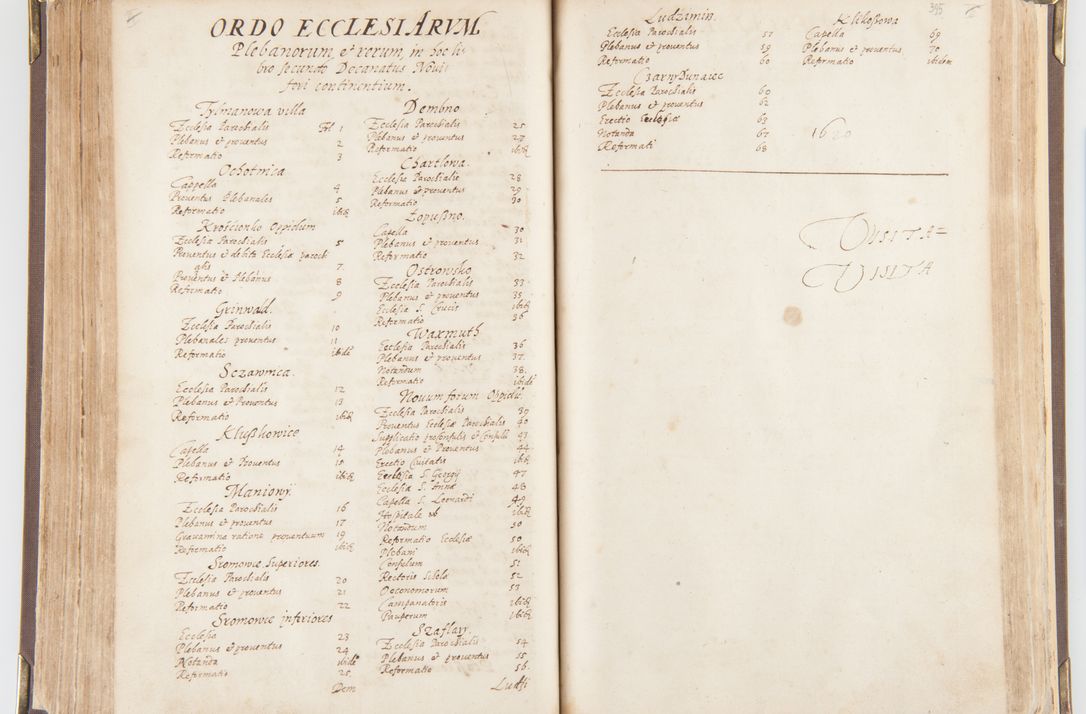 ORDO ECCLESIARVM
Plebanorum, et rerum, in hoc li-
bro secundo Decanatus Novi
fori continentium.
Tylmanowa villa
Ecclesia Parochialis Fol 1
Plebanus et proventus 2
Reformatio 3
Ochotnica
Cappella 4
Proventus Plebanales 5
Reformatio ibid
Krościenko Oppidum
Ecclesia Parochialis 5
Proventus et debita Ecclesiæ parochi
alis 7
Proventus et Plebanus 8
Reformatio 9
Grinwald.
Ecclesia Parochialis 10
Plebanales proventus 11
Reformatio ibidē
Sczawnica.
Ecclesia Parochialis 12
Plebanus et Proventus 13
Reformatio ibid
Klushkowice
Capella 14
Plebanus et Proventus 15
Reformatio ibid
Maniowy.
Ecclesia Parochialis 16
Plebanus et proventus 17
Gravamina ratione proventuum 19
Reformatio ibid
Sromowce Superiores.
Ecclesia Parochialis 20
Plebanus et proventus 21
Reformatio 22
Sromowce inferiores
Ecclesia 23
Plebanus et proventus 24
Notanda ibidē
Reformatio 25.
Dem
Dembno
Ecclesia Parochialis 25
Plebanus et proventus 27
Reformatio ibid
Chartlowa.
Ecclesia Parochialis 28
Plebanus et proventus 29
Reformatio 30
Lopusno.
Capella 30
Plebanus et proventus 31
Reformatio 32
Ostrowsko
Ecclesia Parochialis 33
Plebanus et proventus 35
Ecclesia S. Crucis ibid
Reformatio 36
Waxmuth
Ecclesia Parochialis 36
Plebanus et proventus 37.
Notandum 38.
Reformatio ibidē
Novum forum Oppidū.
Ecclesia Parochialis 39
Proventus Ecclesiæ Parochialis 40
Supplicatio prosonsulis et Consulū 43
Plebanus et Proventus 44
Erectio Civitatis ibid
Ecclesia S. Georgij 47
Ecclesia S. Annæ 48
Capella S. Leonardi 49
Hospitale ibid
Notandum 50
Reformatio Ecclesiæ 50
Plebani ibid
Consulum 51
Rectoris Scholæ 52
Oeconomorum 53
Campanatoris ibid
Pauperum ibid
Szaflary.
Ecclesia Parochialis 54
Plebanus et proventus 55
Reformatio 56.
Ludzi
Ludzimin.
Ecclesia Parochialis 57
Plebanus et proventus 59
Reformatio 60
CzarnyDunaiec
Ecclesia Parochialis 60
Plebanus et proventus 62
Erectio Ecclesiæ 63
Notanda 67
Reformati 68
395
Klikoszowa
Capella 69
Plebanus et proventus 70
Reformatio ibidem
1620
VISITA=
VISITA